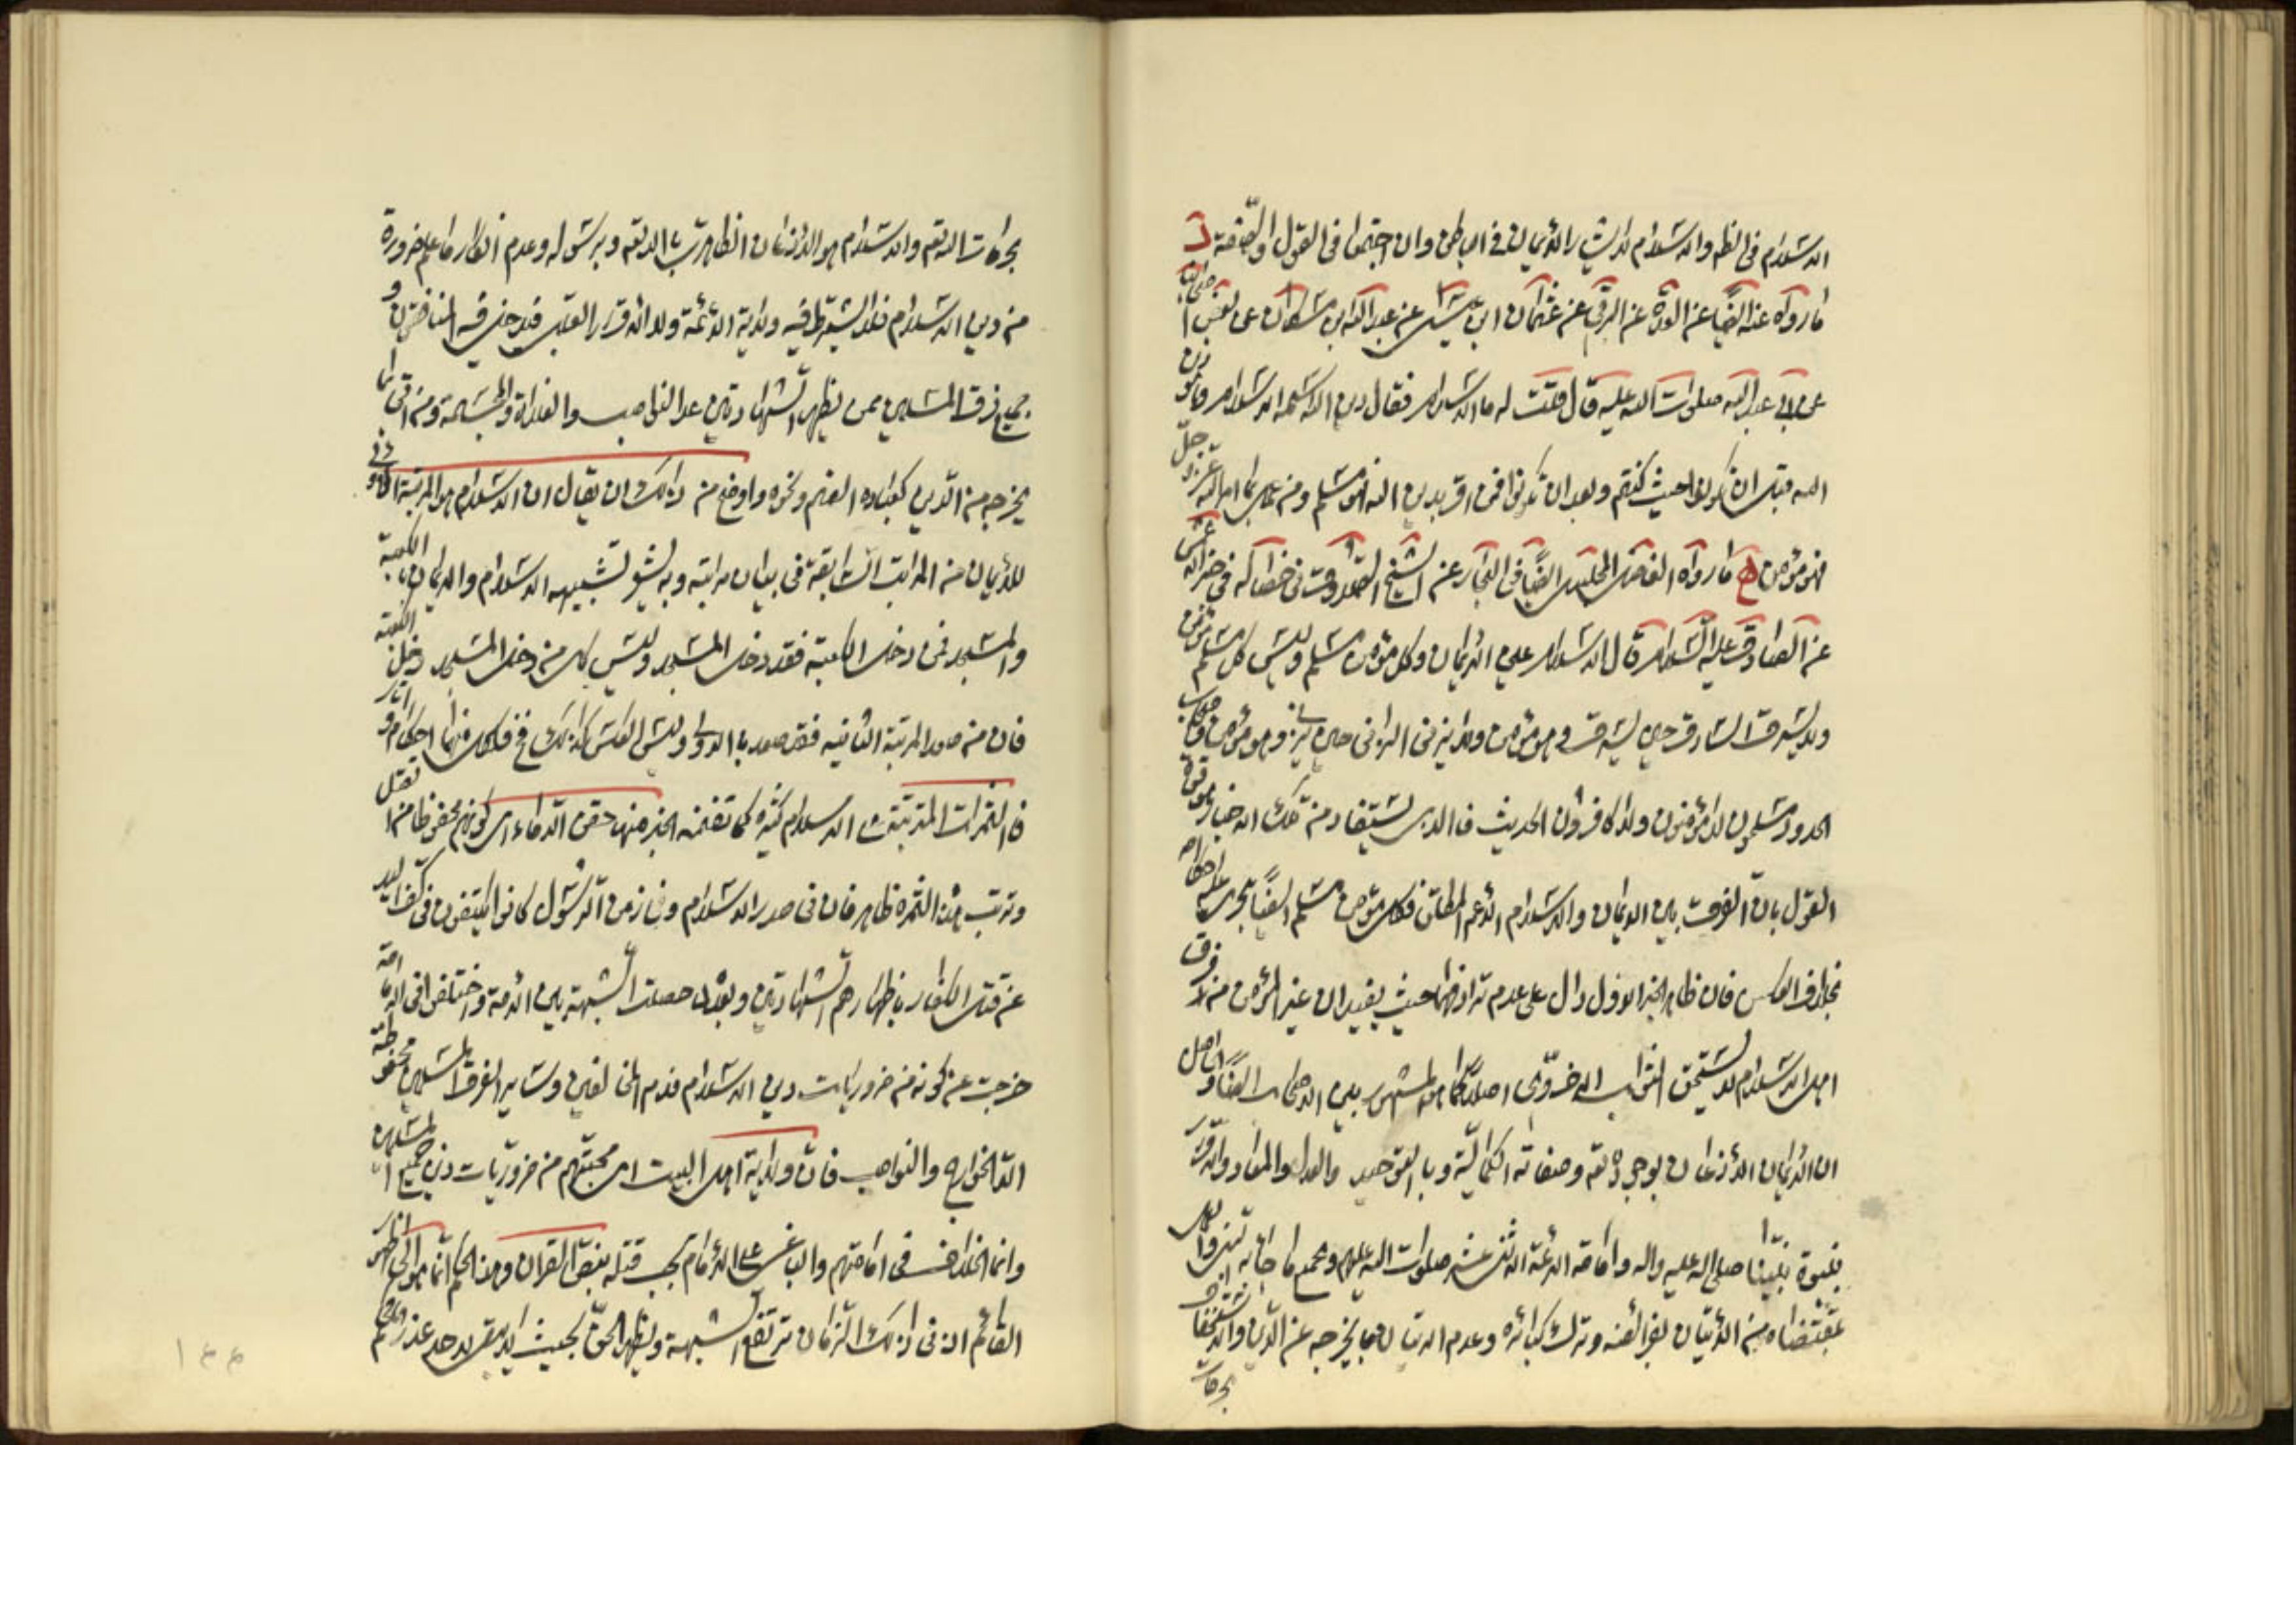 الاسلام في الظهر والاسلام لا يشارك الايمان في الباطن وان اجتمعا في القول والصفة د
ما رواه عنه ايضا عن العدة عن البرقي عن عثمان ابن عيسى عن عبد الله ابن مسكان عن بعض اصحابه
عن ابي عبد الله صلوات الله عليه قال قلت له ما الاسلام فقال دين الله اسمه الاسلام وهو دين
الله قبل ان تكونوا حيث كنتم وبعد ان تكونوا فمن اقر بدين الله فهو مسلم ومن عمل بما امر الله عز وجل
فهو مؤمن ه ما رواه الفاضل المجلسي ايضا في البحار عن الشيخ الصدوق في خصاله في خبر الاعمش
عن الصادق عليه السلام قال الاسلام غير الايمان وكل مؤمن مسلم وليس كل مسلم مؤمن
ولا يسرق السارق حين يسرق وهو مؤمن ولا يزني الزاني حين يزني وهو مؤمن واصحاب
الحدود مسلمون لا مؤمنون ولا كافرون الحديث فالذي يستفاد من تلك الاخبار
القول بان الفرق بين الايمان والاسلام الاعم المطلق فكل مؤمن مسلم ايضا يجري عليه احكامه
بخلاف العكس فان ظاهر الخبر الاول دال على عدم ترادفهما حيث يفيد ان غير المؤمن من فرق
اهل الاسلام لا يستحق الثواب الاخروي اصلا كما هو المشهور بين الاصحاب ايضا
ان الايمان الاذعان بوجوده تعه وصفاته الكمالية وبالتوحيد والعدل والمعاد والاقرار
بنبوة نبينا صلى اله عليه واله وامامة الائمة الاثنى عشر صلوات الله عليهم وبجميع ما جاء به
بمقتضاه من الاتيان بفرائضه وترك كبائره وعدم الاتيان بما يخرجه عن الدين والاستخفاف
بحرمات
بحرمات الله تعه والاسلام هو الاذعان الظاهري بالله تعه وبرسوله وعدم انكار ما علم ضرورة
من دين الاسلام فلا يشترط فيه ولاية الائمة ولا الاقرار القلبي فيدخل فيه المنافقون و
جميع فرق المسلمين ممن يظهر الشهادتين عدا النواصب والغلاة والمجسمة ومن اتى بما
يخرجه من الدين كعبادة الصنم ونحوه واوضح من ذلك ان يقال ان الاسلام هو المرتبة الاولى
للايمان من المراتب السابقة في بيان مراتبه وبه يشير تشبيهه الاسلام والايمان بالكعبة
والمسجد فمن دخل الكعبة فقد دخل المسجد وليس كل من دخل المسجد دخل الكعبة
فان من صعد المرتبة الثانيه فقد صعد بالاولى وليس العكس كذلك فح فلكل منهما احكام واثار
فالثمرات المترتبة على الاسلام كثيرة كما تضمنه الخبر منها حقن الدماء اي كونهم محفوظا من القتل
وترتب هذه الثمره ظاهر فان في صدر الاسلام وفي زمن الرسول كانوا يكتفون في كف اليد
عن قتل الكفار باظهارهم الشهادتين وبعده لما حصلت الشبهة بين الامة واختلفوا في الامامة
خرجت عن كونه من ضروريات دين الاسلام فدم المخالفين وساير الفرق المسلمين محفوظة
الا الخوارج والنواصب فان ولاية اهل البيت اي محبتهم من ضروريات دين جميع المسلمين
وانما الخلاف في امامتهم والباغي على الامام يجب قتله بنص القران وهذا الحكم انما هو الى ظهور
القائم اذ في ذلك الزمان ترتفع الشبهة ويظهر الحق بحيث لا يبقى لاحد عذر